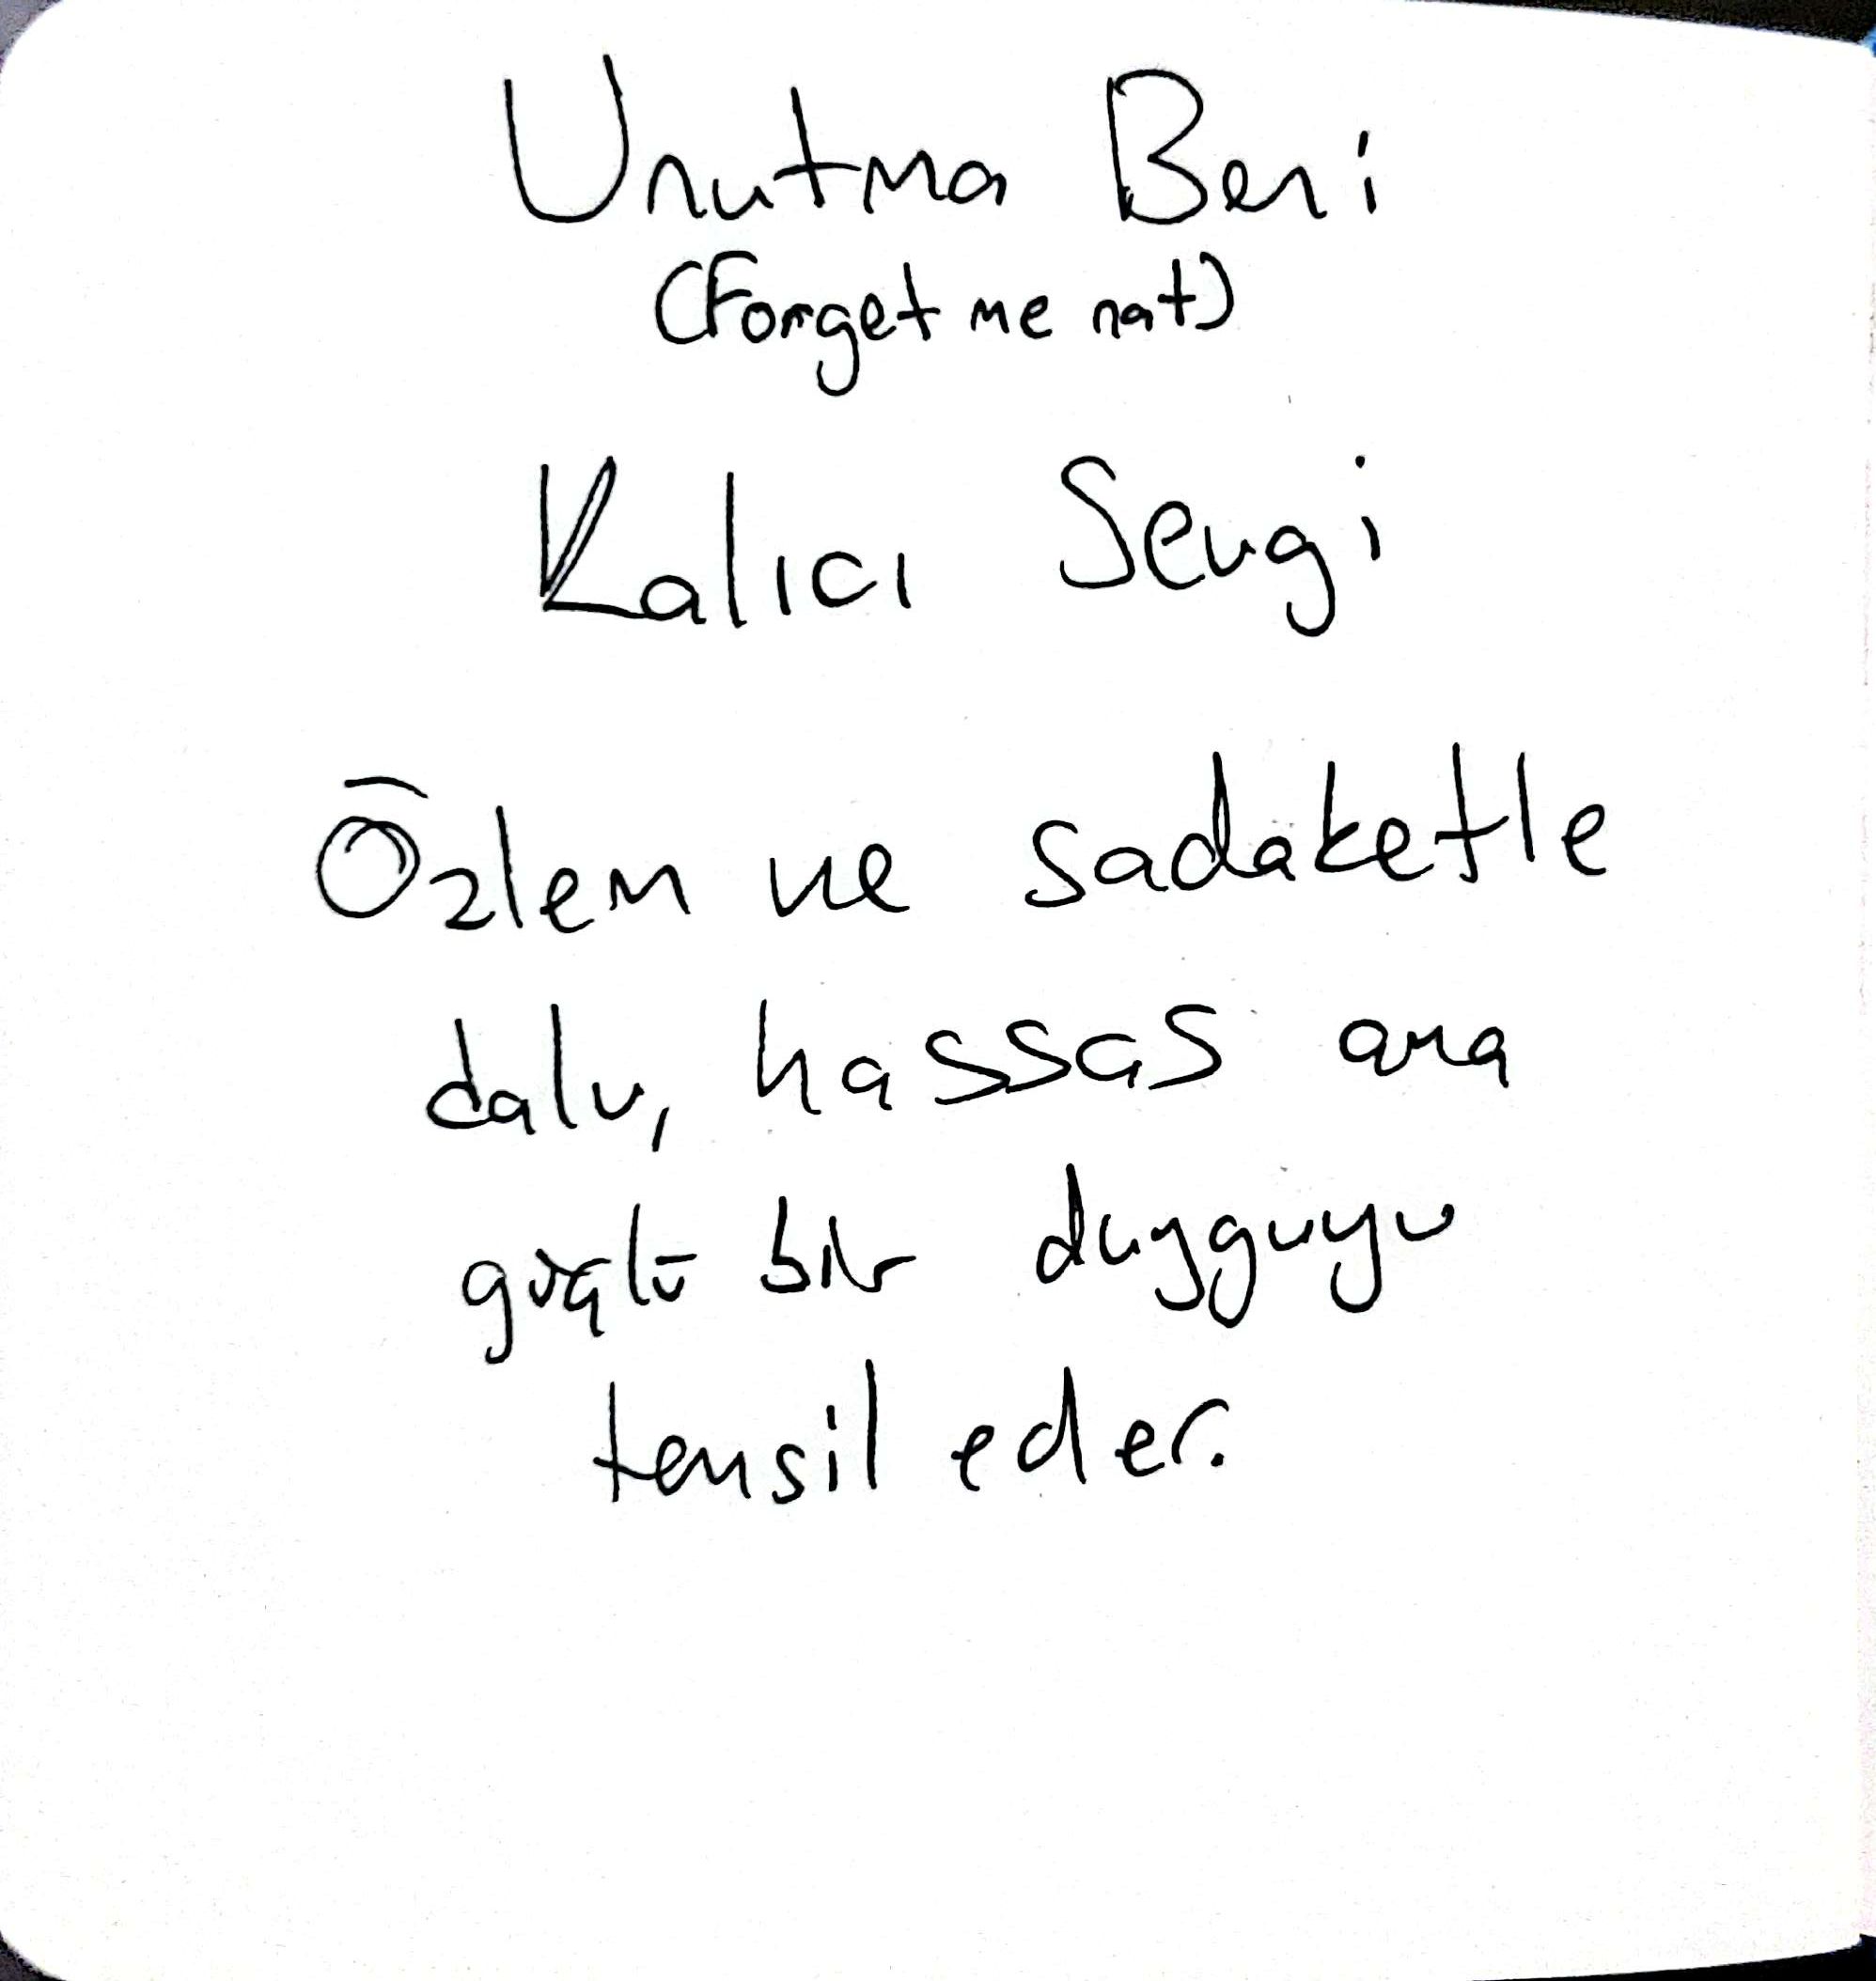 Unutma Beni
(Forget me not)
Kalıcı Sevgi
Özlem ve sadaketle
dolu, hassas ama
güçlü bir duyguyu
temsil eder.